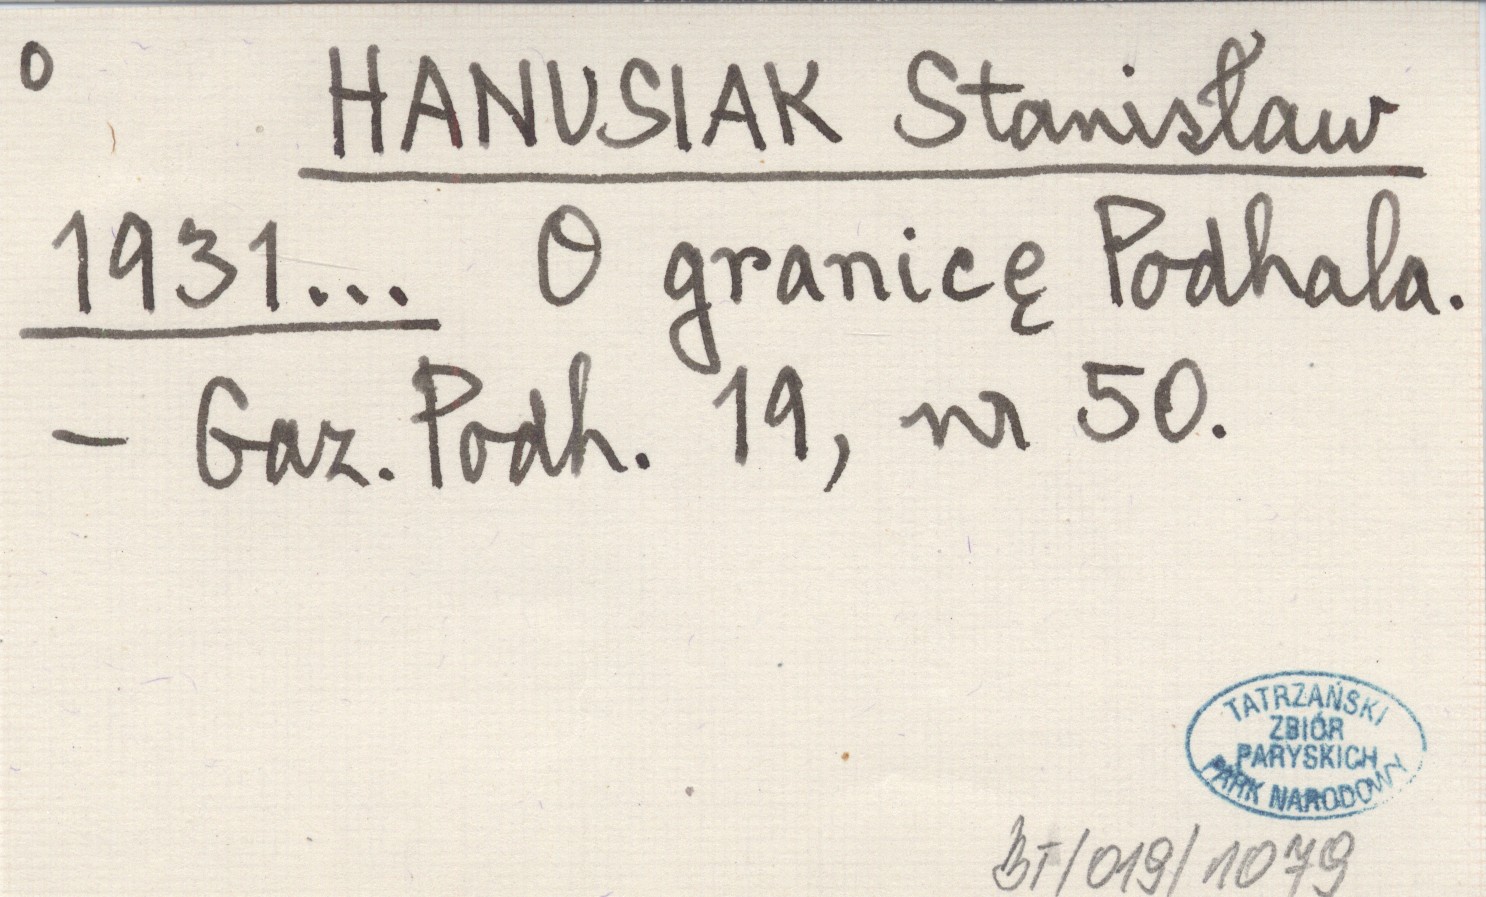 o HANUSIAK Stanisław
1931... O granicę Podhala.
– Gaz. Podh. 19, nr 50.
TATRZAŃSKI
ZBIÓR
PARYSKICH
PARK NARODOWY
BT/019/1079